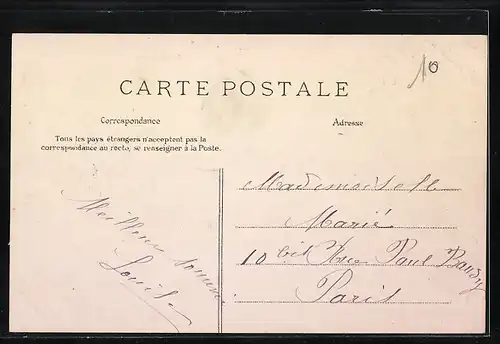 10
CARTE POSTALE
Correspondance
Adresse
Tous les pays étrangers n'acceptent pas la
correspondance au recto, se renseigner à la Poste.
Meilleur souvenir
Louise
Mademoiselle
Marie
10 bis Rue Paul Baudry
Paris